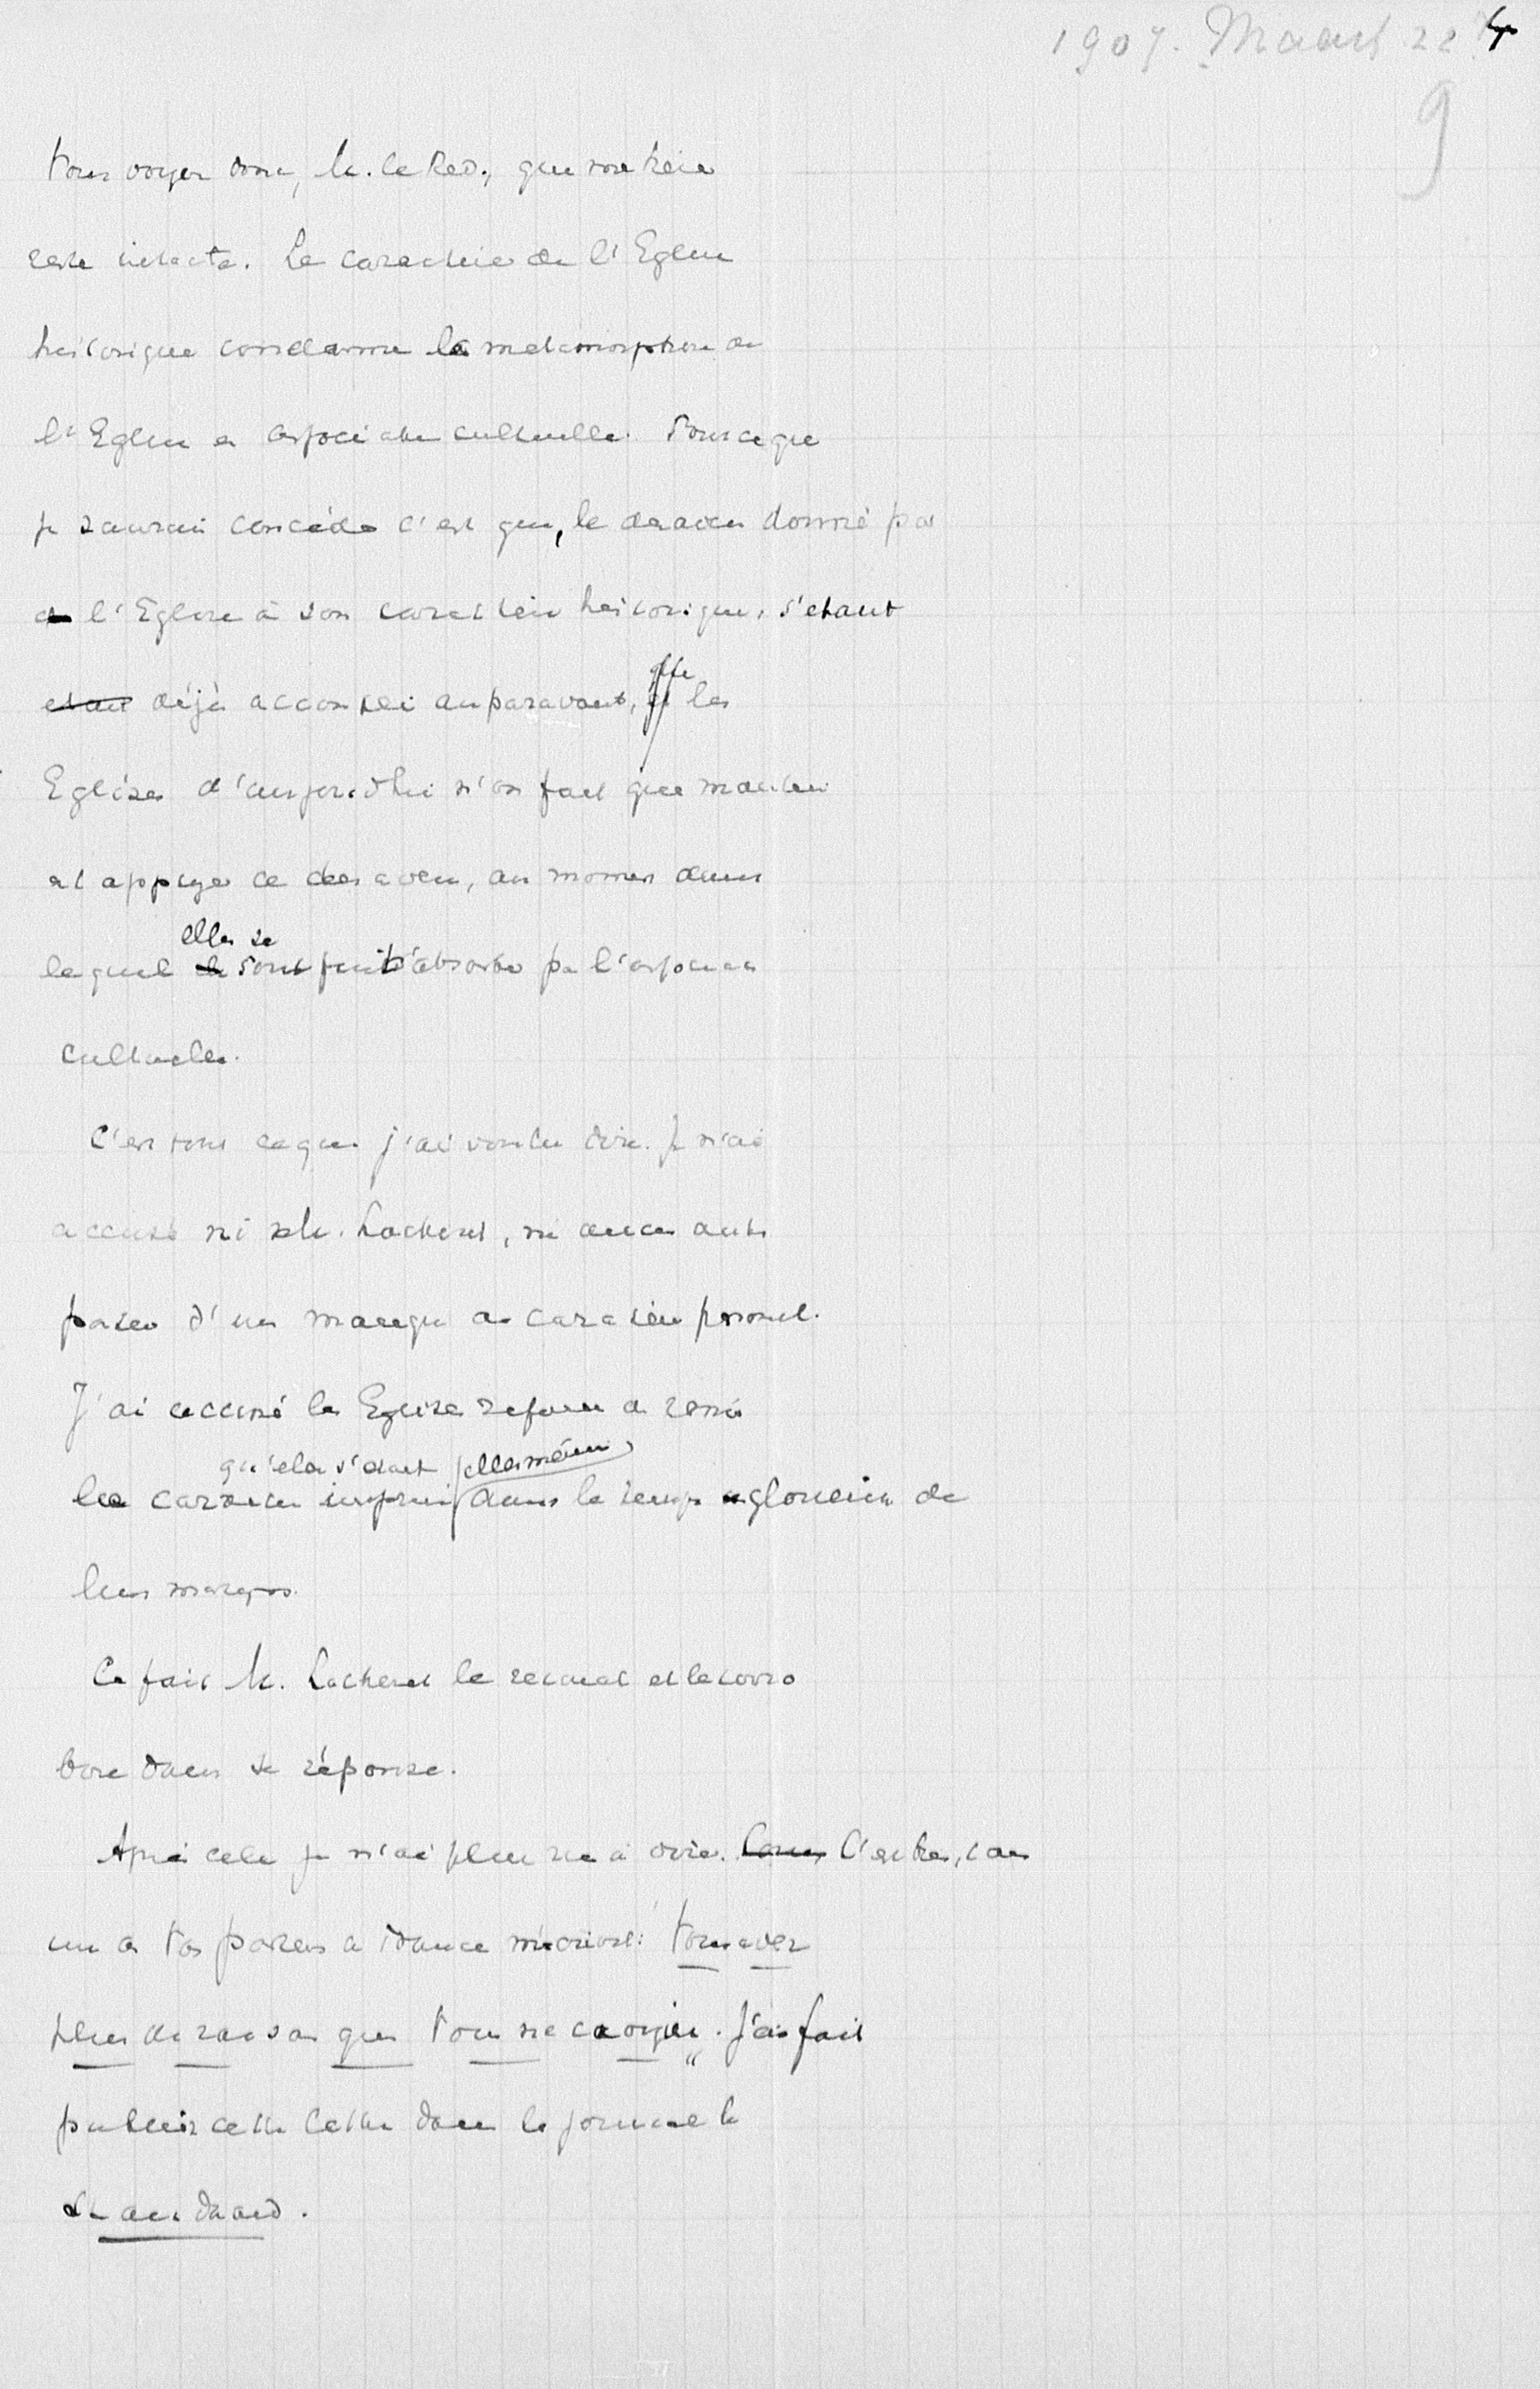 1907. Maart 22
4
9
Vous voyez donc, M. le Red., que ma thèse
reste intacte. Le caractère de l'Eglise
historique condamne la metamorphose de
l'Eglise en association cultuelle. Tout ce que
je saurais concéder c'est que, le desaveu donné par
l'Eglise à son caractère historique, s'etant
etant déjà accompli auparavant, les
Eglises d'aujourdhui n'on fait que maintenir
et appuyer ce desaveu, au moment dans
elles se
lequel sont absorber par l'association
cultuelle.
C'est tout ce que j'ai voulu dire. Je n'ai
accusé ni M. Lacheret, ni aucun autre
pasteur d'un manque de caractère personel.
J'ai accusé les Eglises reformées d renié
qu'elles s'etaient elles mêmes
le caractère imprimé dans le temps glorieux de
leurs martyrs.
Ce fait M. Lacheret le reconnait et le corro
bore dans sa réponse.
Après cela je n'ai plus rien à dire. C'est bien, car
un de vos pasteurs de France m'écrivit: Vous avez
plus de raison que vous ne croyiez". J'ai fait
publier cette lettre dans le journal le
Standaard.